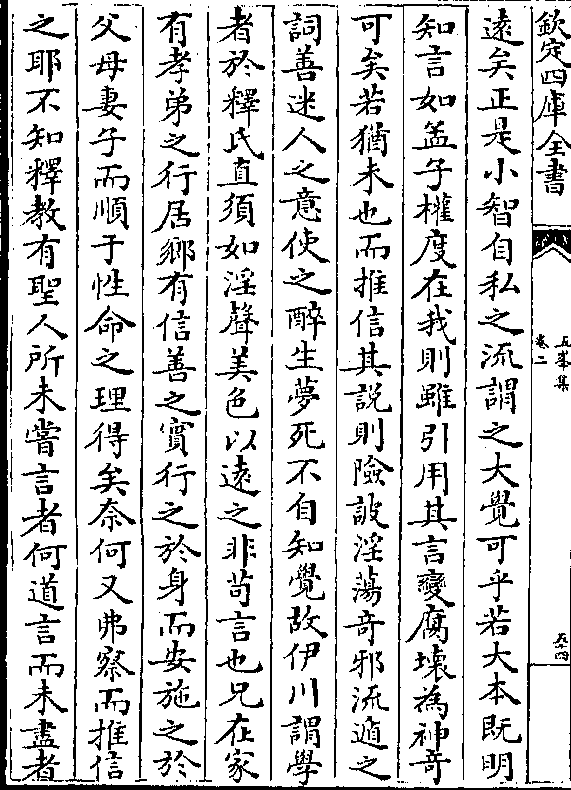 欽定四庫全書
五峯集
卷二
五十四
遠矣正是小智自私之流謂之大覺可乎若大本既明
知言如孟子權度在我則雖引用其言變腐壞為神竒
可矣若猶未也而推信其説則險詖淫蕩奇邪流遁之
詞善迷人之意使之醉生夢死不自知覺故伊川謂學
者於釋氏直須如淫聲美色以逺之非苟言也兄在家
有孝弟之行居鄉有信善之實行之於身而安施之於
父母妻子而順于性命之理得矣奈何又弗察而推信
之耶不知釋教有聖人所未嘗言者何道言而未盡者